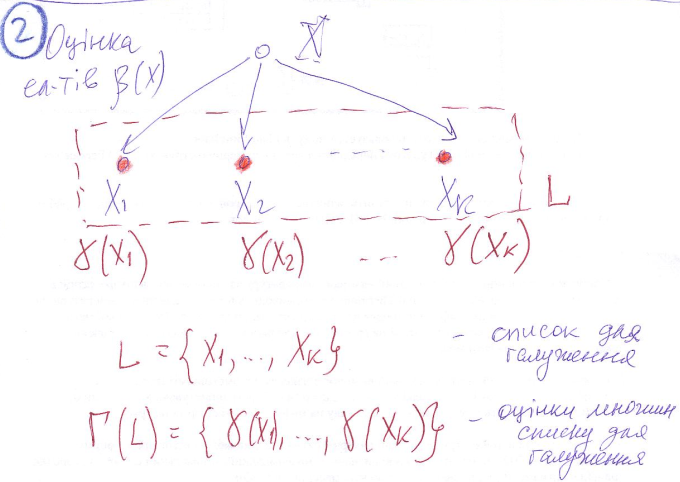 2 Оцінка
ел-тів β(X)
X
X₁ X₂ Xₖ L
γ(X₁) γ(X₂) ... γ(Xₖ)
L = {X₁,..., Xₖ} - список для
галуження
Γ(L) = {γ(X₁),..., γ(Xₖ)} - оцінки множин
списку для
галуження